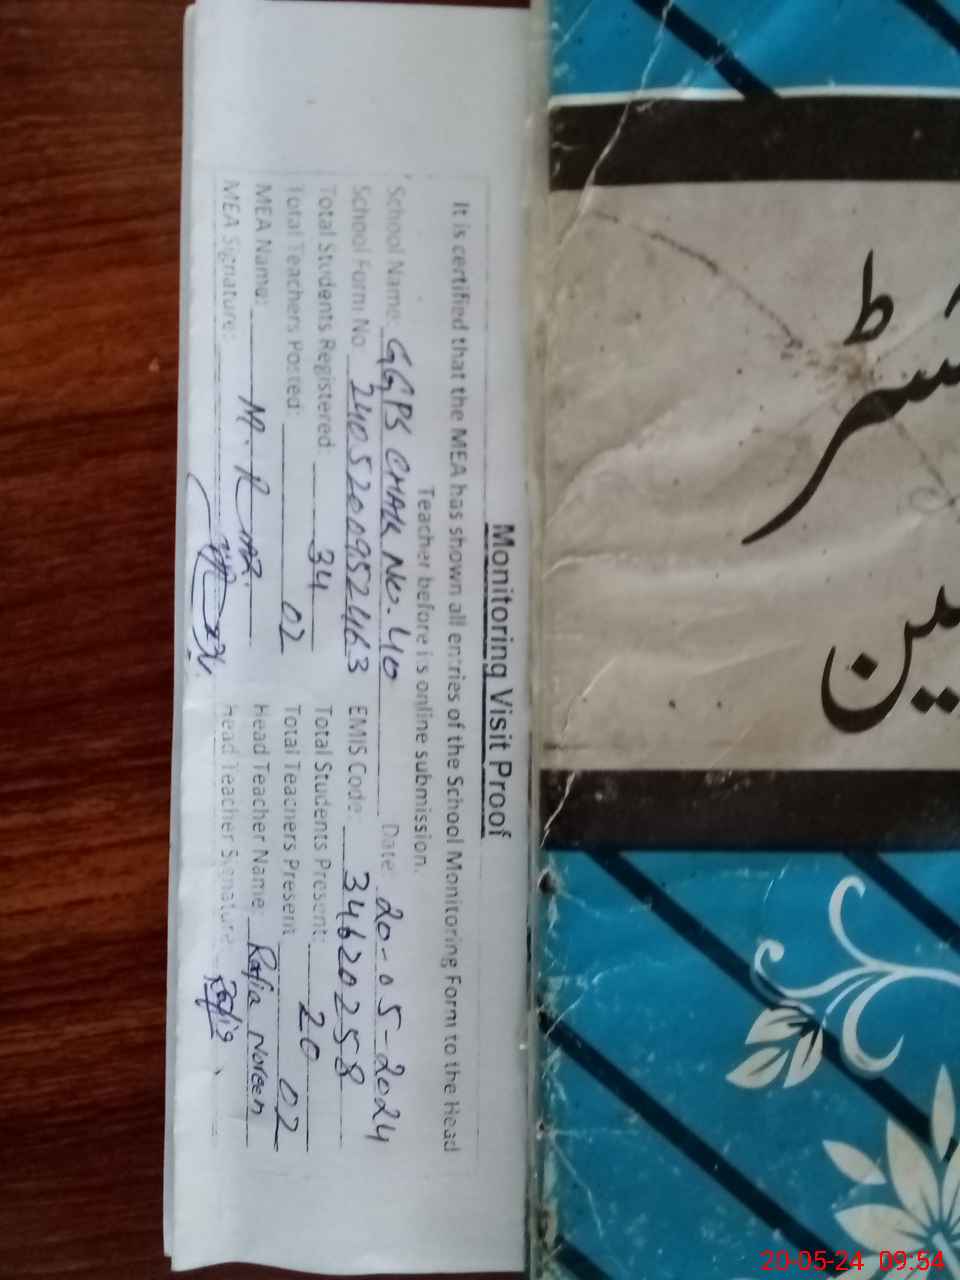 Monitoring Visit Proof
It is certified that the MEA has shown all entries of the School Monitoring Form to the Head
Teacher before its online submission.
School Name: GGPS CHAK No. 40 Date: 20-05-2024
School Form No: 2405200952463 EMIS Code: 34620258
Total Students Registered: 34 Total Students Present: 20
Total Teachers Posted: 02 Total Teachers Present: 02
MEA Name: M. R Head Teacher Name: Rafia Noreen
MEA Signature: Head Teacher Signature: Rafia
20-05-24 09:54